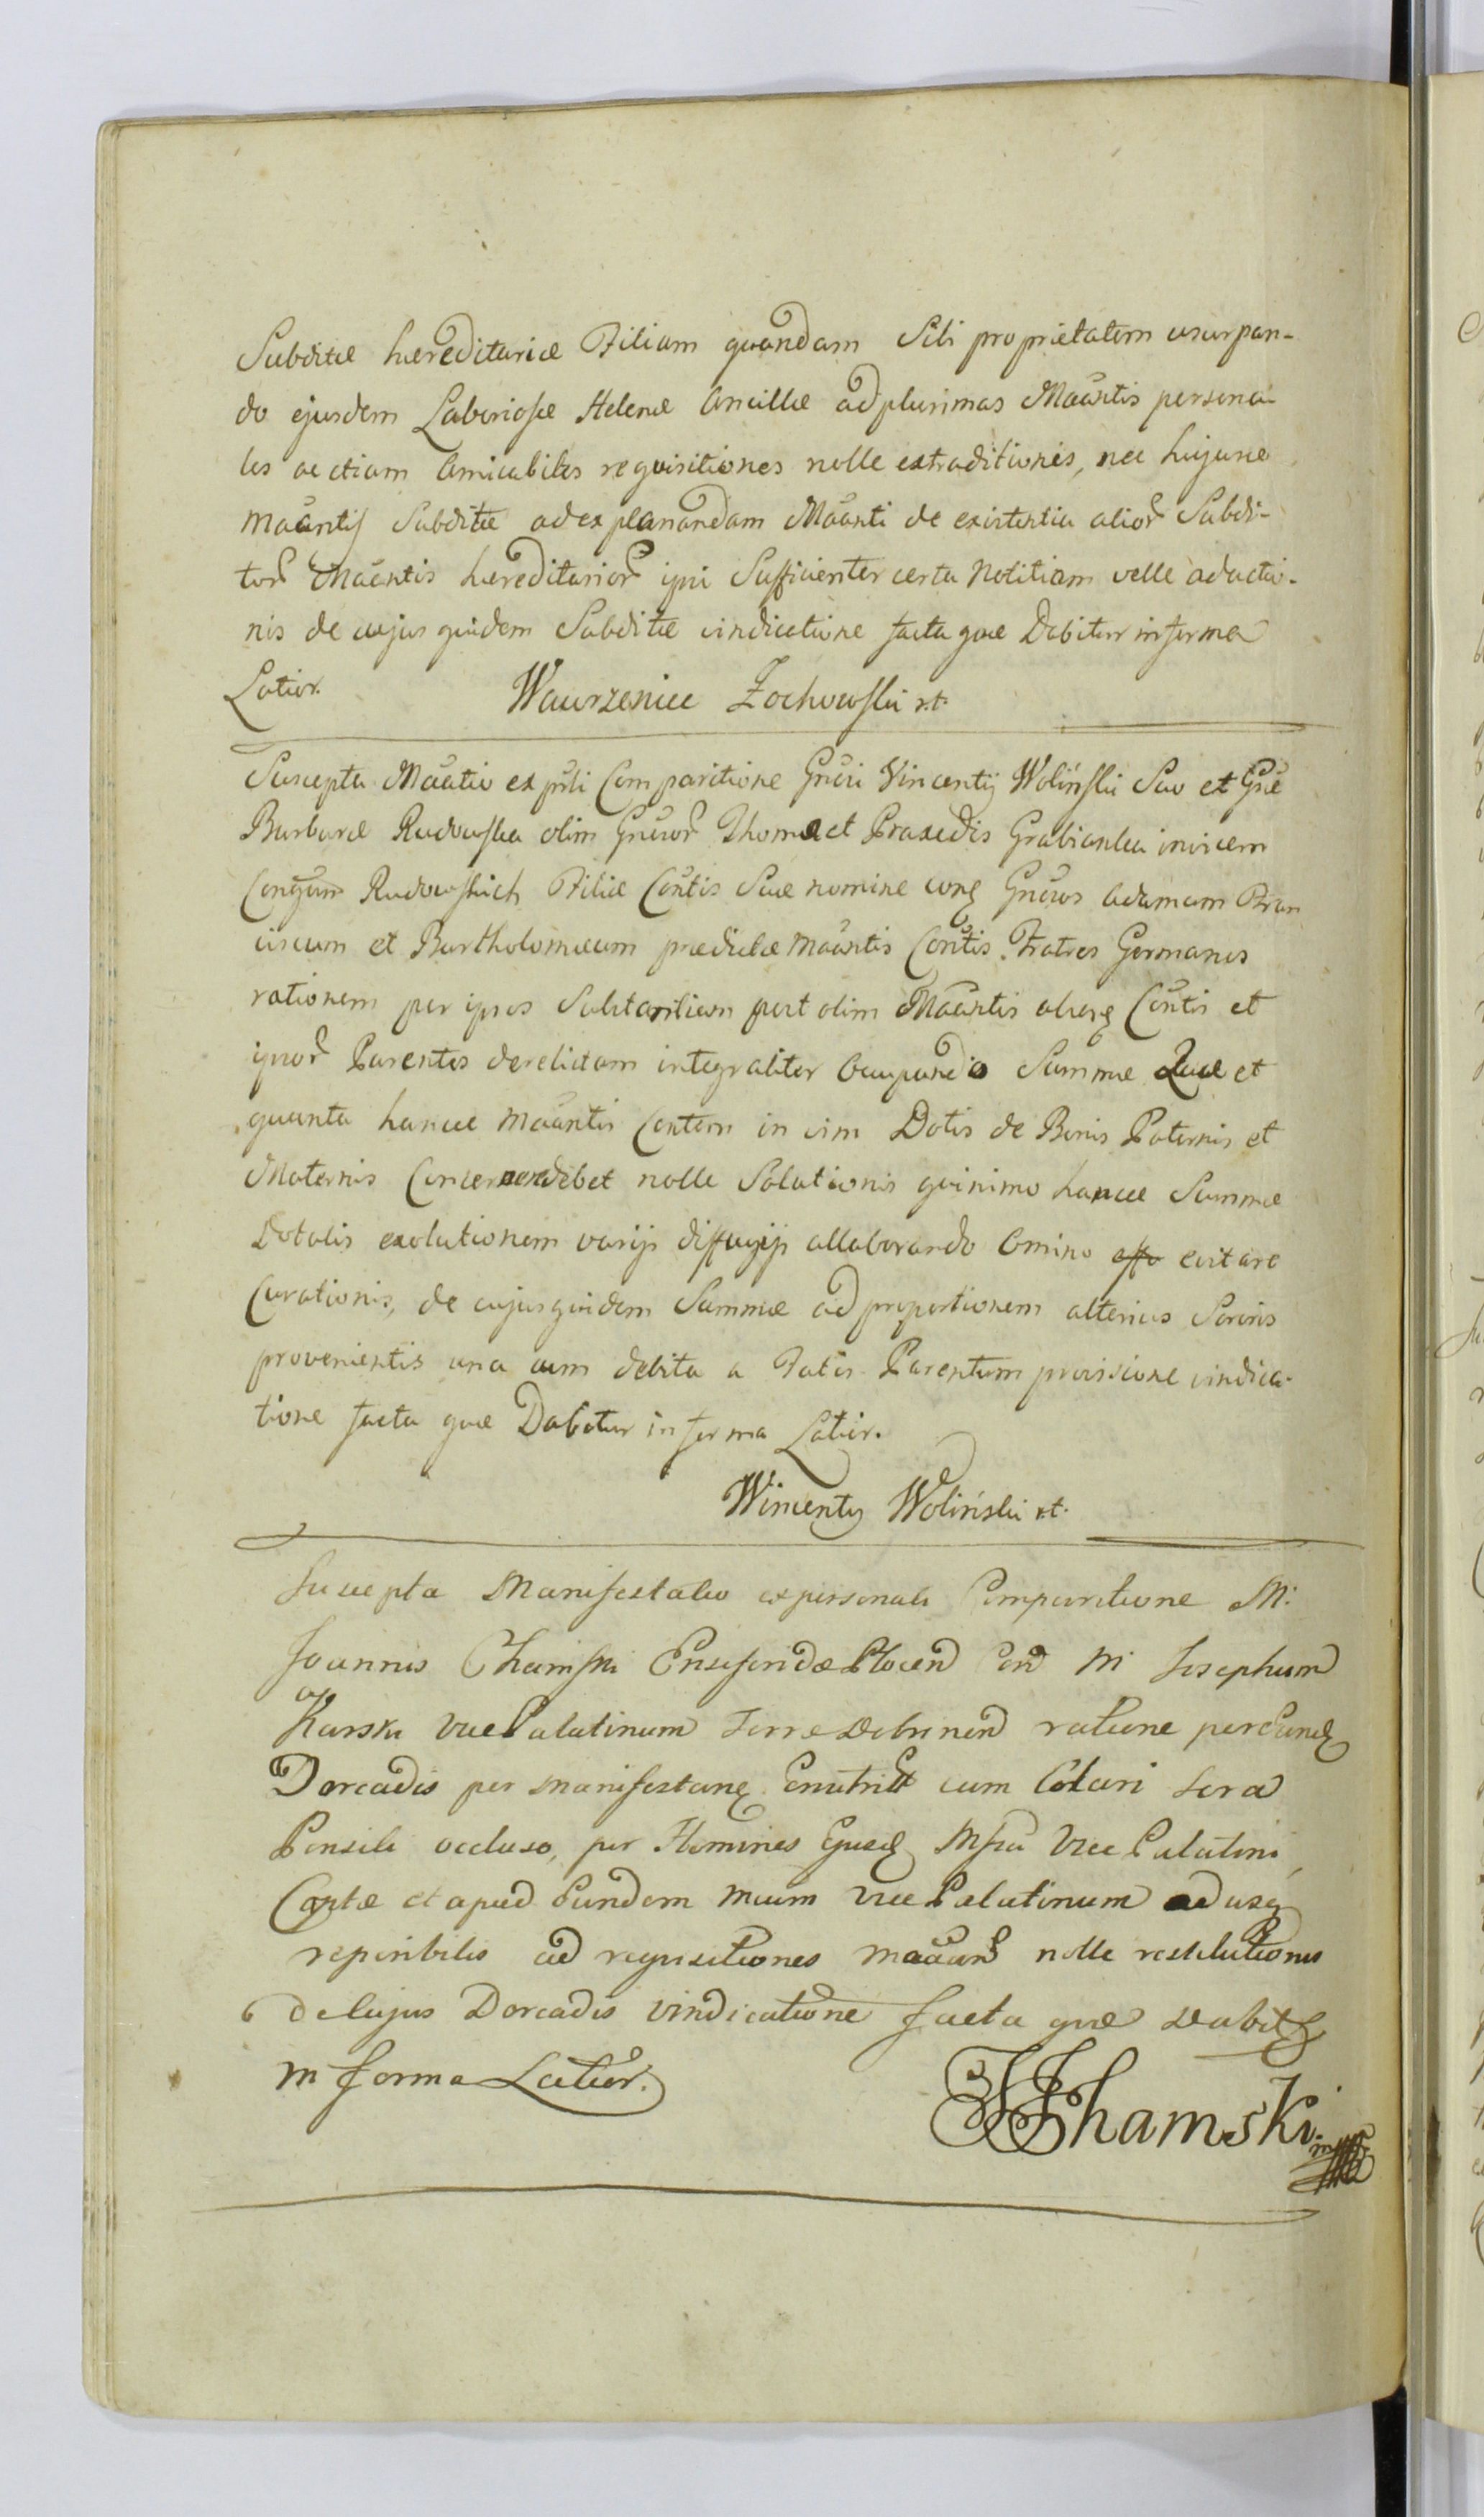 Subditæ hæreditariæ Filiam quandam Sibi proprietatem usurpan-
do ejusdem Laboriosæ Helenæ Ancillæ ad plurimas Maantis persona-
les ac etiam Amicabiles requisitiones nolle extraditionis, nec hujusce
Maantis Subditæ ad explanandam Maanti de existentia alior Subdi-
tor Maantis hæreditarior qui Sufficienter certa Notitiam velle
nis de cujus quidem Subditæ vindicatione facta quæ Dabitur in forma
Latior. Wawrzeniec Żochowski r.t.
Suscepta Maatio ex psli Comparitione Gnsi Vincentij Woliński Suo et Gsæ
Barbaræ Rudowska olim Gnsor Thomæ et Praxedis Grabianka invicem
Conjgum Rudowskich Filiæ Contis Suæ nomine cong Gnsos Adamum Fran
ciscum et Bartholomæum prædictæ Maantis Contis Fratres Germanos
rationem per ipsos Substantiam post olim Maantis absq Contis et
ipsor Parentes derelictam integraliter Occupando Summæ Quæ et
quanta hancce Maantis Contem in vim Dotis de Bonis Paternis et
Maternis debet nolle Solutionis quinimo hancce Summæ
Dotalis exolutionem varijs diffugijs allaborando Omnino evitare
Curationis, de cujus quidem Summæ ad proportionem alterius Sororis
provenientis una cum debita a Fatis Parentum provisione vindica-
tione facta quæ Dabitur in forma Latior.
Wincenty Woliński r.t.
Suscepta Manifestatio ex personali Comparitione M:
Joannis Chamski Ensiferidæ Plocen Con M Josephum
Karski Vice Palatinum Terræ Dobrinen ratione
Dorcadis per manifestane Enutrit cum Colari sera
Pensili occluso, per Homines Ejusd Vice Palatini
Captæ et apud Eundem Mcum Vice Palatinum ad usq
reperibilis ad requisitiones nolle restitutionis
de Cujus Dorcadis vindicatione facta quæ Dabit
in forma Latior.
JChamski mpp